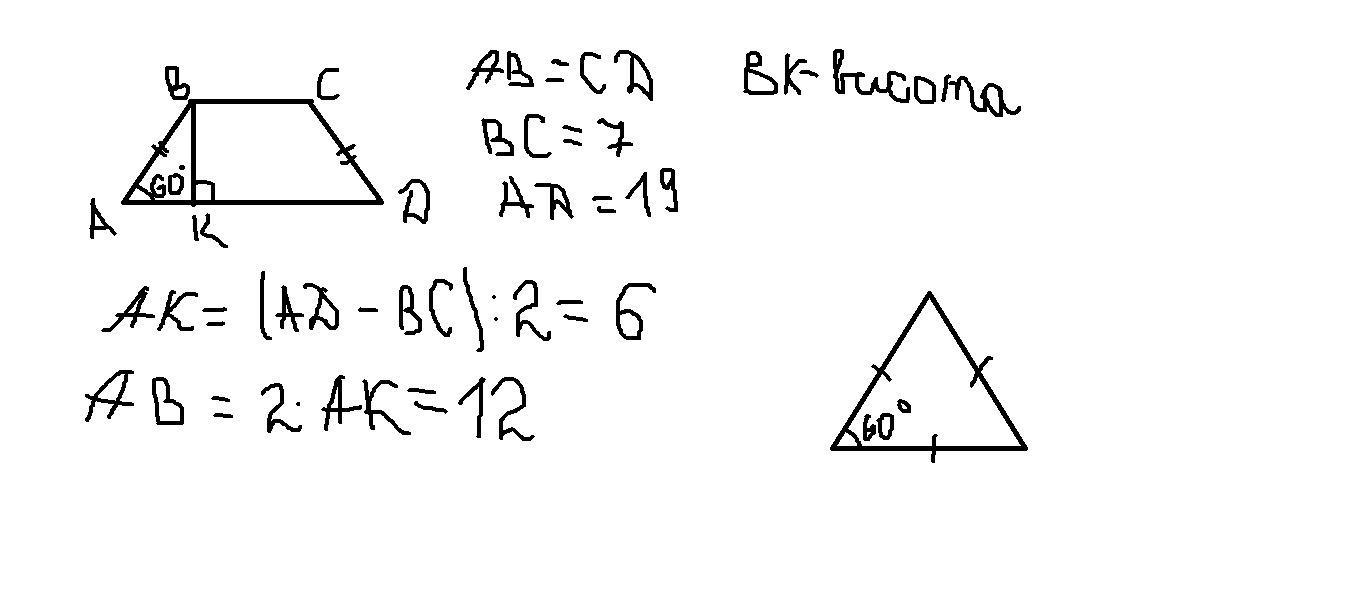 B C
60°
A K D
AB = CD
BC = 7
AD = 19
BK - висота
AK = (AD - BC) : 2 = 6
AB = 2 · AK = 12
60°